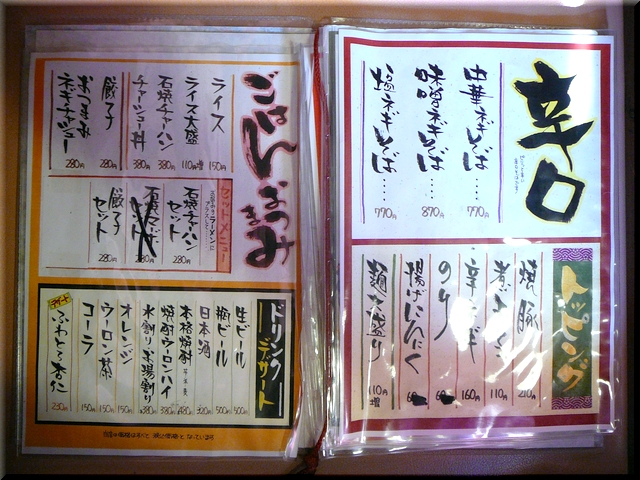 辛口
中華ネギそば……770円
味噌ネギそば……870円
塩ネギそば……790円
トッピング
焼豚 210円
煮玉子 110円
辛ネギ 160円
のり
揚げにんにく
麺大盛り 110円増
ごはん おつまみ
ライス 150円
ライス大盛 110円増
石焼チャーハン 380円
チャーシュー丼 380円
餃子 280円
おつまみネギチャーシュー 280円
セットメニュー
石焼チャーハンセット 280円
餃子セット 280円
ドリンク デザート
生ビール 500円
瓶ビール 500円
日本酒 320円
本格焼酎 480円
焼酎ウーロンハイ 380円
水割り・お湯割り 380円
オレンジ 150円
ウーロン茶 150円
コーラ 150円
デザート
ふわとろ杏仁 230円